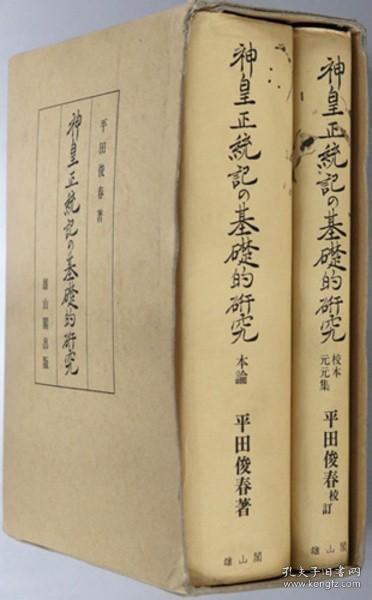 平田俊春著
神皇正統記の基礎的研究
雄山閣出版
神皇正統記の基礎的研究
本論
平田俊春著
雄山閣
神皇正統記の基礎的研究
校本
元元集
平田俊春校訂
雄山閣
孔夫子旧书网